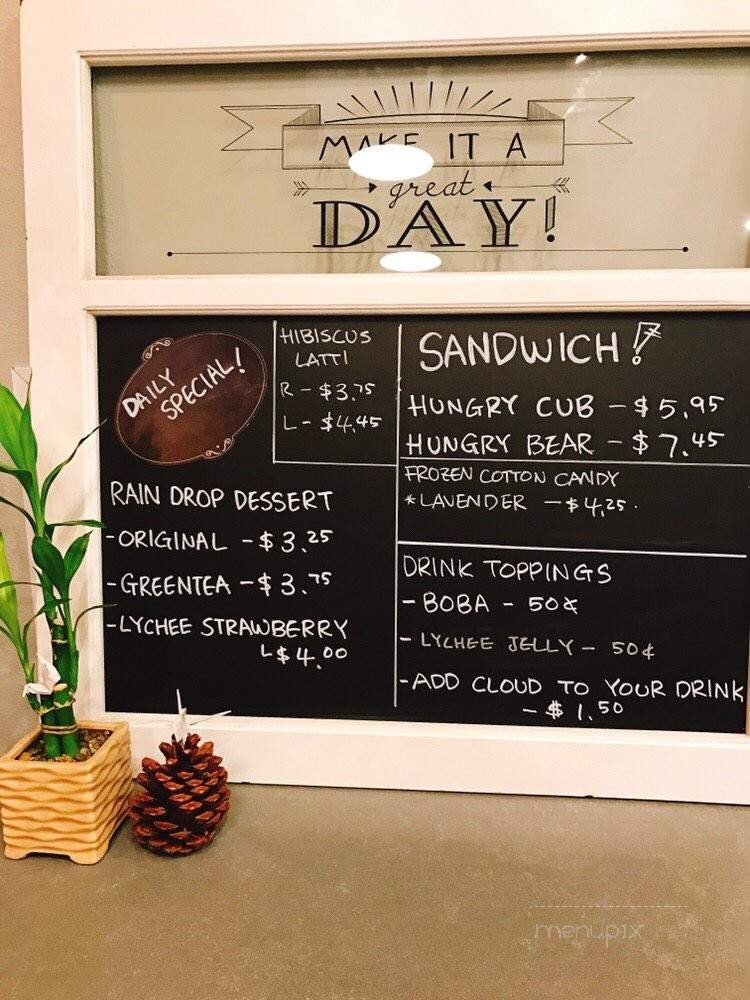 MAKE IT A
great
DAY!
DAILY
SPECIAL!
HIBISCUS
LATTI
R - $3.75
L - $4.45
RAIN DROP DESSERT
- ORIGINAL - $3.25
- GREENTEA - $3.75
- LYCHEE STRAWBERRY
$4.00
SANDWICH!
HUNGRY CUB - $5.95
HUNGRY BEAR - $7.45
FROZEN COTTON CANDY
*LAVENDER - $4.25.
DRINK TOPPINGS
- BOBA - 50¢
- LYCHEE JELLY - 50¢
- ADD CLOUD TO YOUR DRINK
- $1.50
menupix